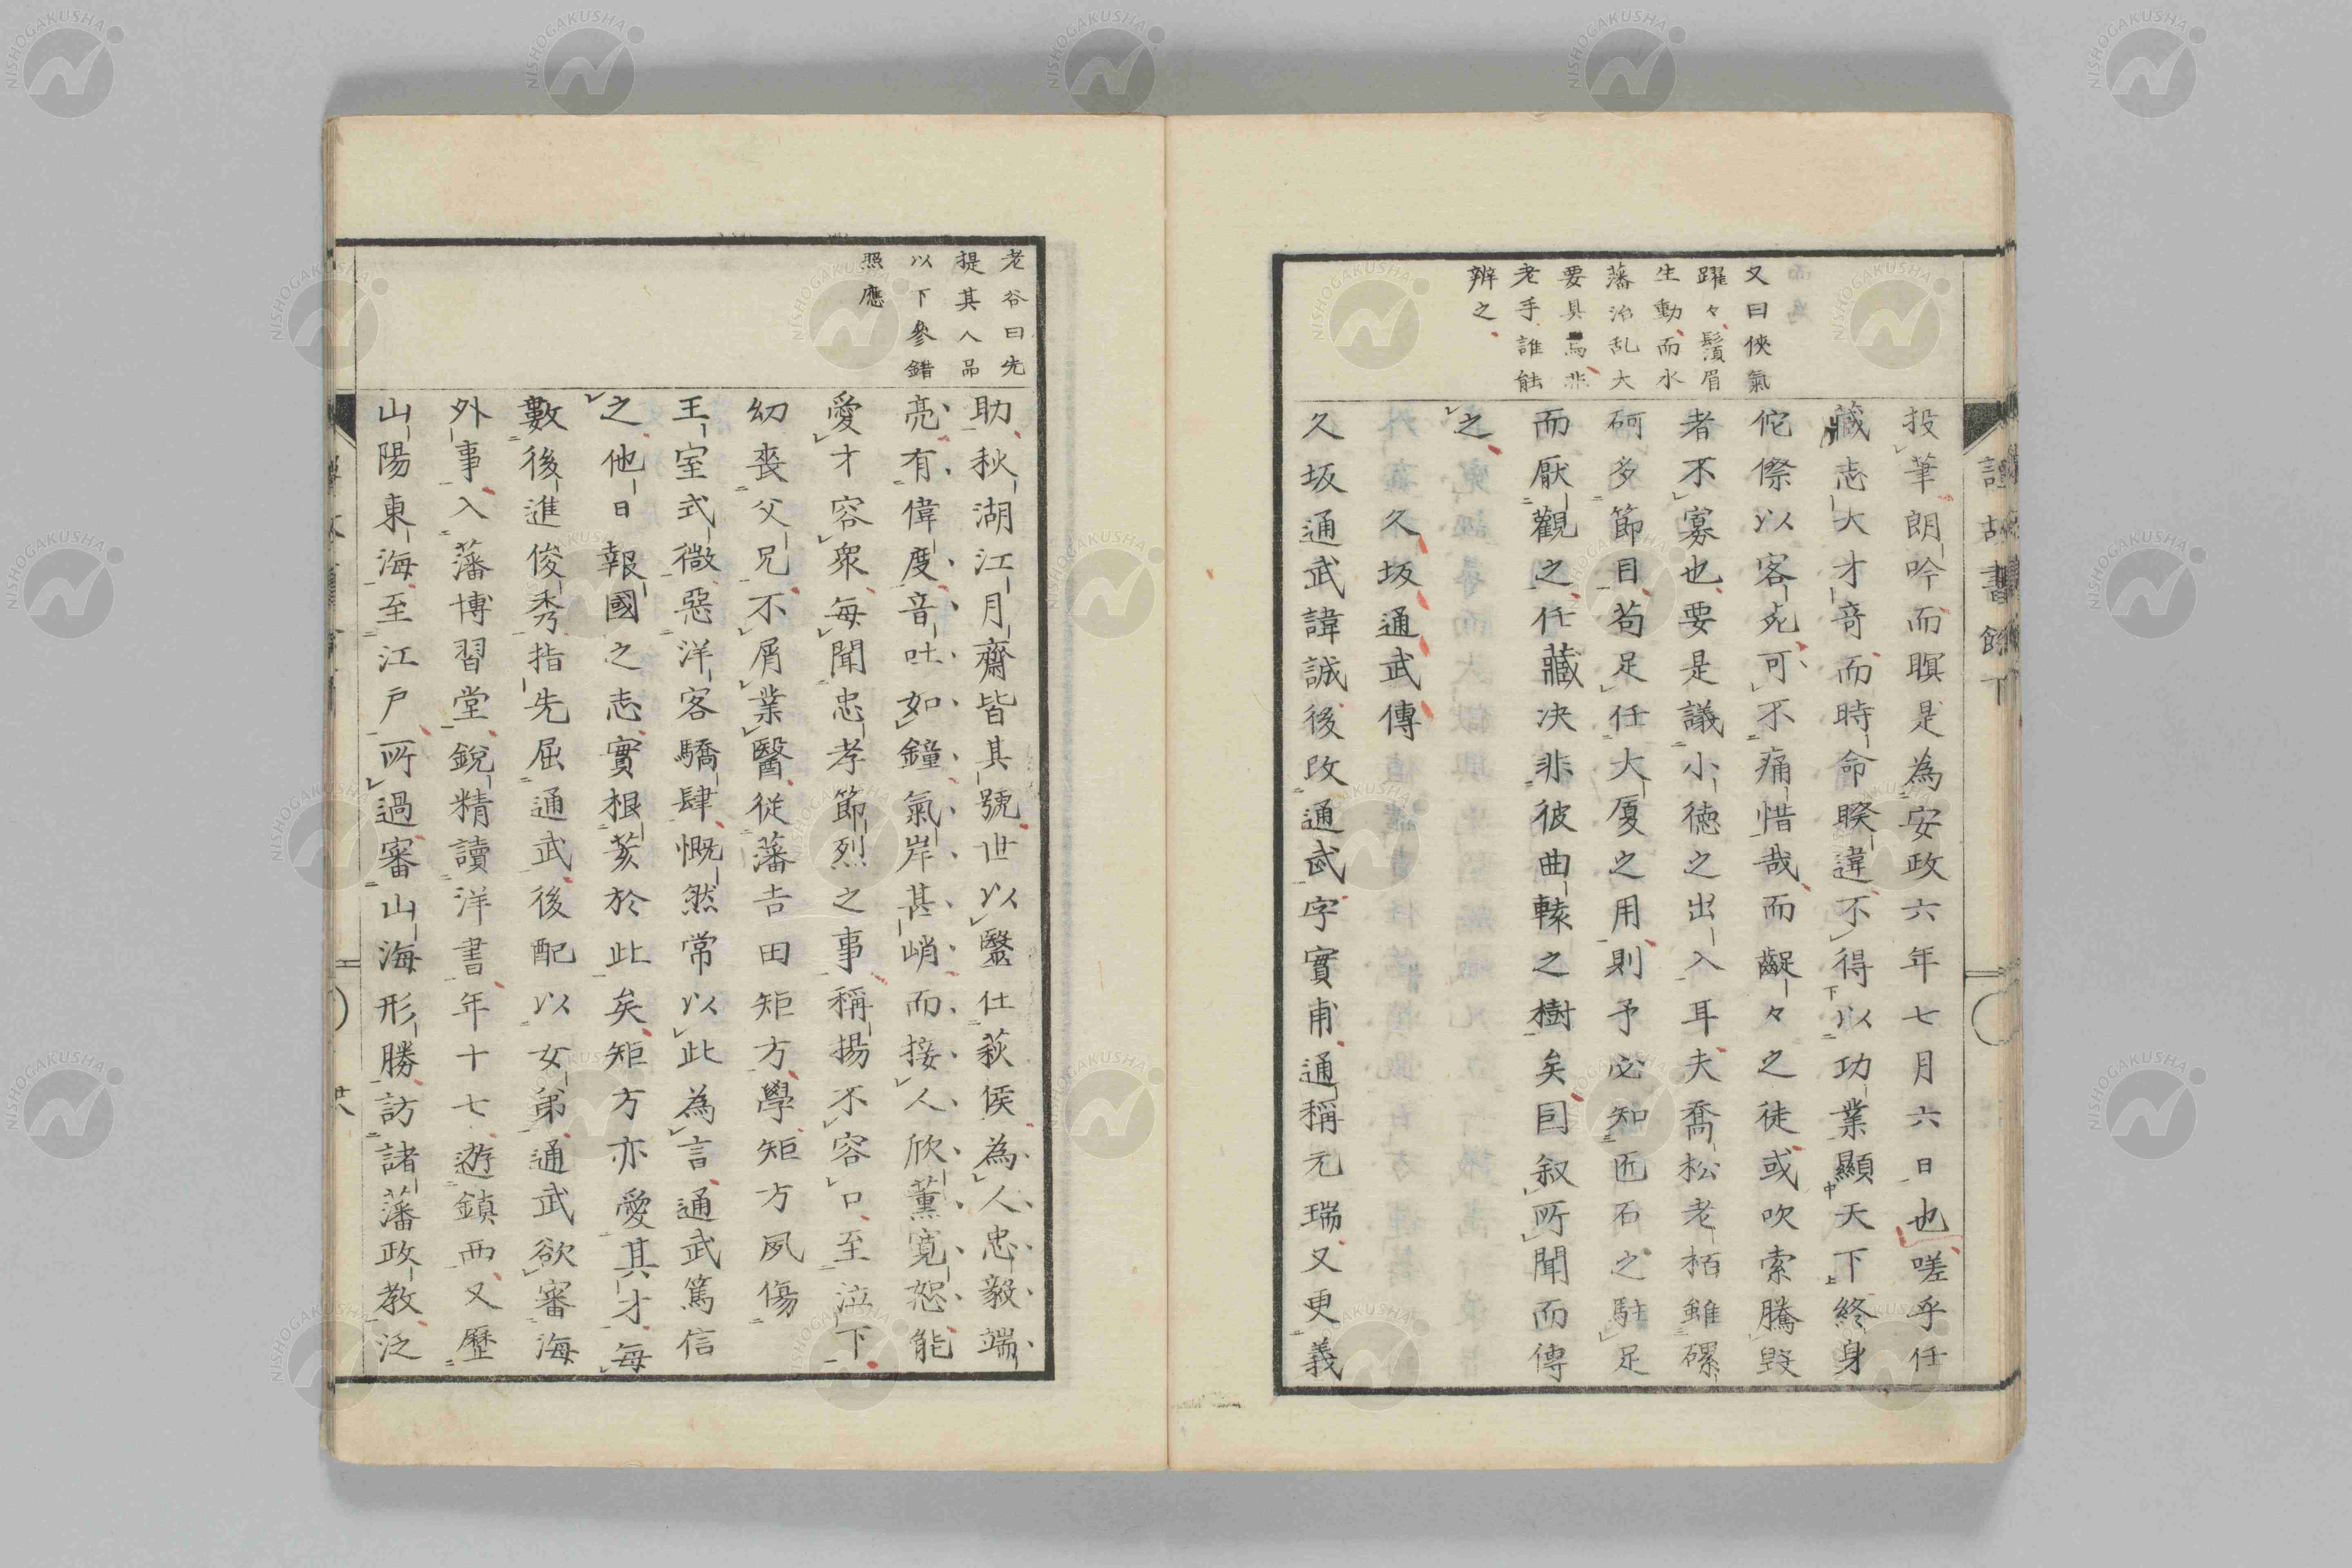 又曰俠氣
躍々鬚眉
生動而水
藩治乱大
要具焉非
老手誰能
辨之
投筆朗吟而瞑是為安政六年七月六日也嗟乎任
藏志大才竒而時命睽違不得以功業顯天下終身
佗傺以客死可不痛惜哉而齪々之徒或吹索騰毀
者不寡也要是議小德之出入耳夫喬松老栢雖磥
砢多節目苟足任大厦之用則予必知匠石之駐足
而厭觀之任藏决非彼曲轅之樹矣囙叙所聞而傳
之
久坂通武傳
久坂通武諱誠後改通武字實甫通稱元瑞又更義
老谷曰先
提其人品
以下參錯
照應
助秋湖江月齋皆其號世以毉仕萩侯為人忠毅端
亮有偉度音吐如鐘氣岸甚峭而接人欣薫寬恕能
愛才容衆每聞忠孝節烈之事稱揚不容口至泣下
幼喪父兄不屑業醫従藩吉田矩方學矩方夙傷
王室式微惡洋客驕肆慨然常以此為言通武篤信
之他日報國之志實根荄於此矣矩方亦愛其才每
數後進俊秀指先屈通武後配以女弟通武欲審海
外事入藩博習堂銳精讀洋書年十七遊鎮西又歷
山陽東海至江戸所過審山海形勝訪諸藩政教泛